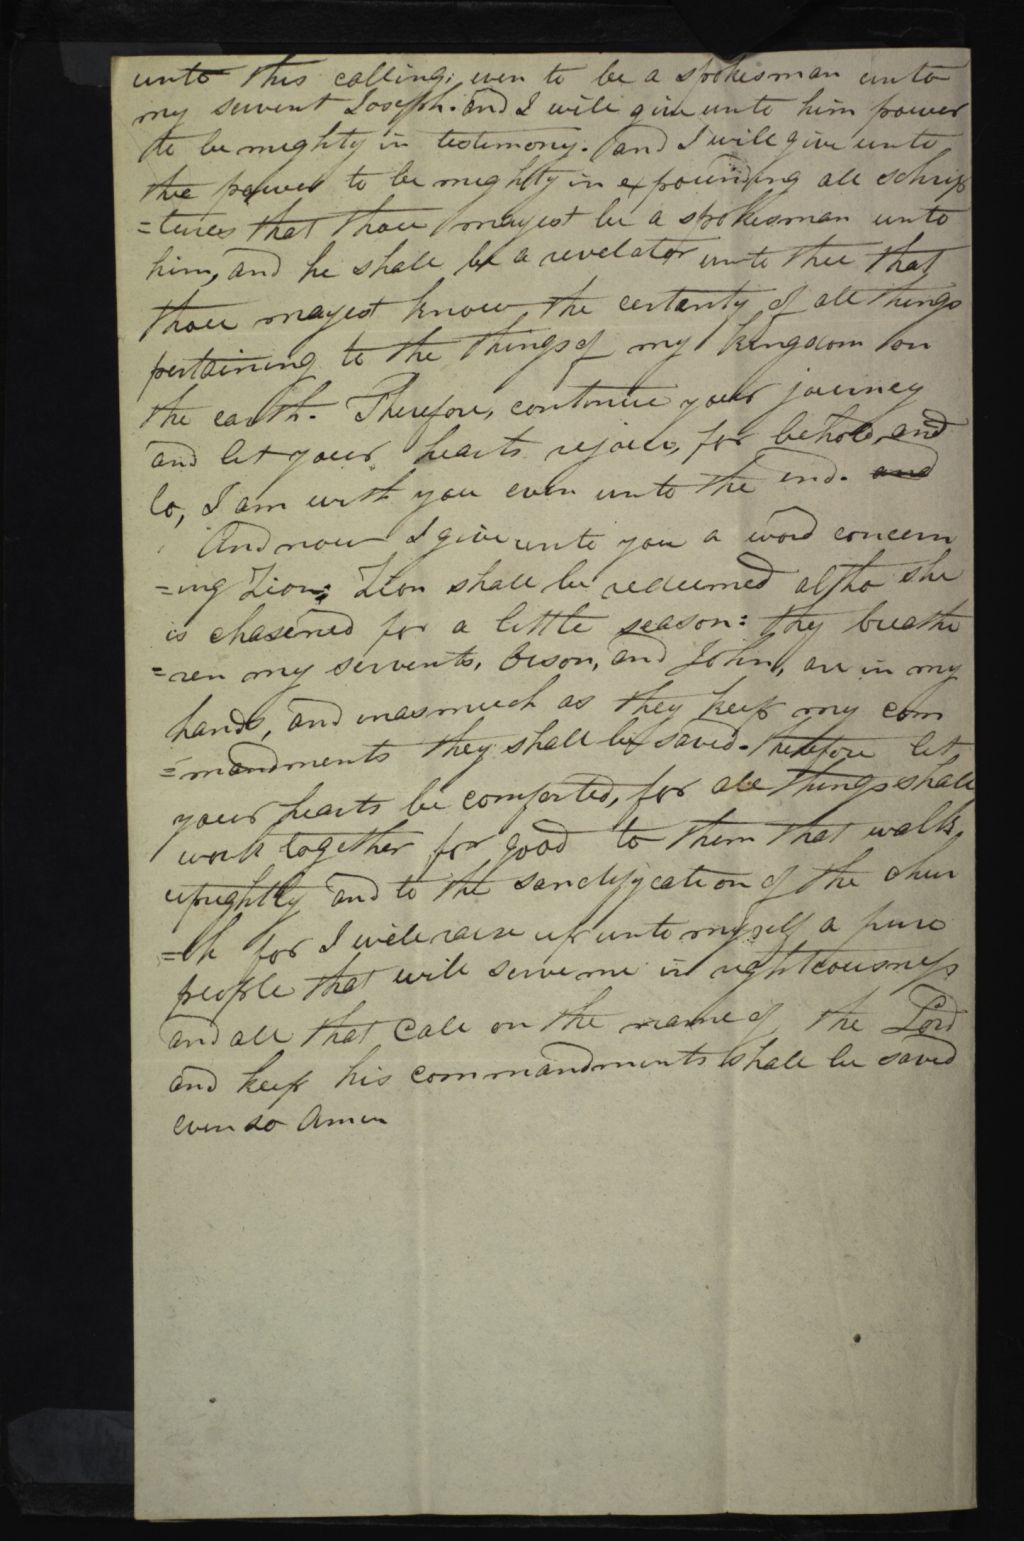 unto this calling; even to be a spokesman unto
my servent Joseph. and I will give unto him power
to be mighty in testimony. and I will give unto
the power to be mighty in expounding all schrip
=tures that thou mayest be a spokesman unto
him, and he shall be a revelator unto thee that
thou mayest know the certanty of all things
pertaining to the things of my kingdom on
the earth. Therefore, continue your journey
and let your hearts rejoice, for behold, and
lo, I am with you even unto the end. and
And now I give unto you a word concern
=ing Zion; Zion shall be redeemed altho she
is chasened for a little season: thy breathe
=ren my servents, Orson, and John, are in my
hands, and inasmuch as they keep my com
=mandments they shall be saved. therefore let
your hearts be comforted, for all things shall
work together for good to them that walk,
uprightly and to the sanctifycation of the chur
=ch for I will raise up unto myself a pure
people that will serve me in righteousness
and all that call on the name of the Lord
and keep his commandments shall be saved
even so Amen